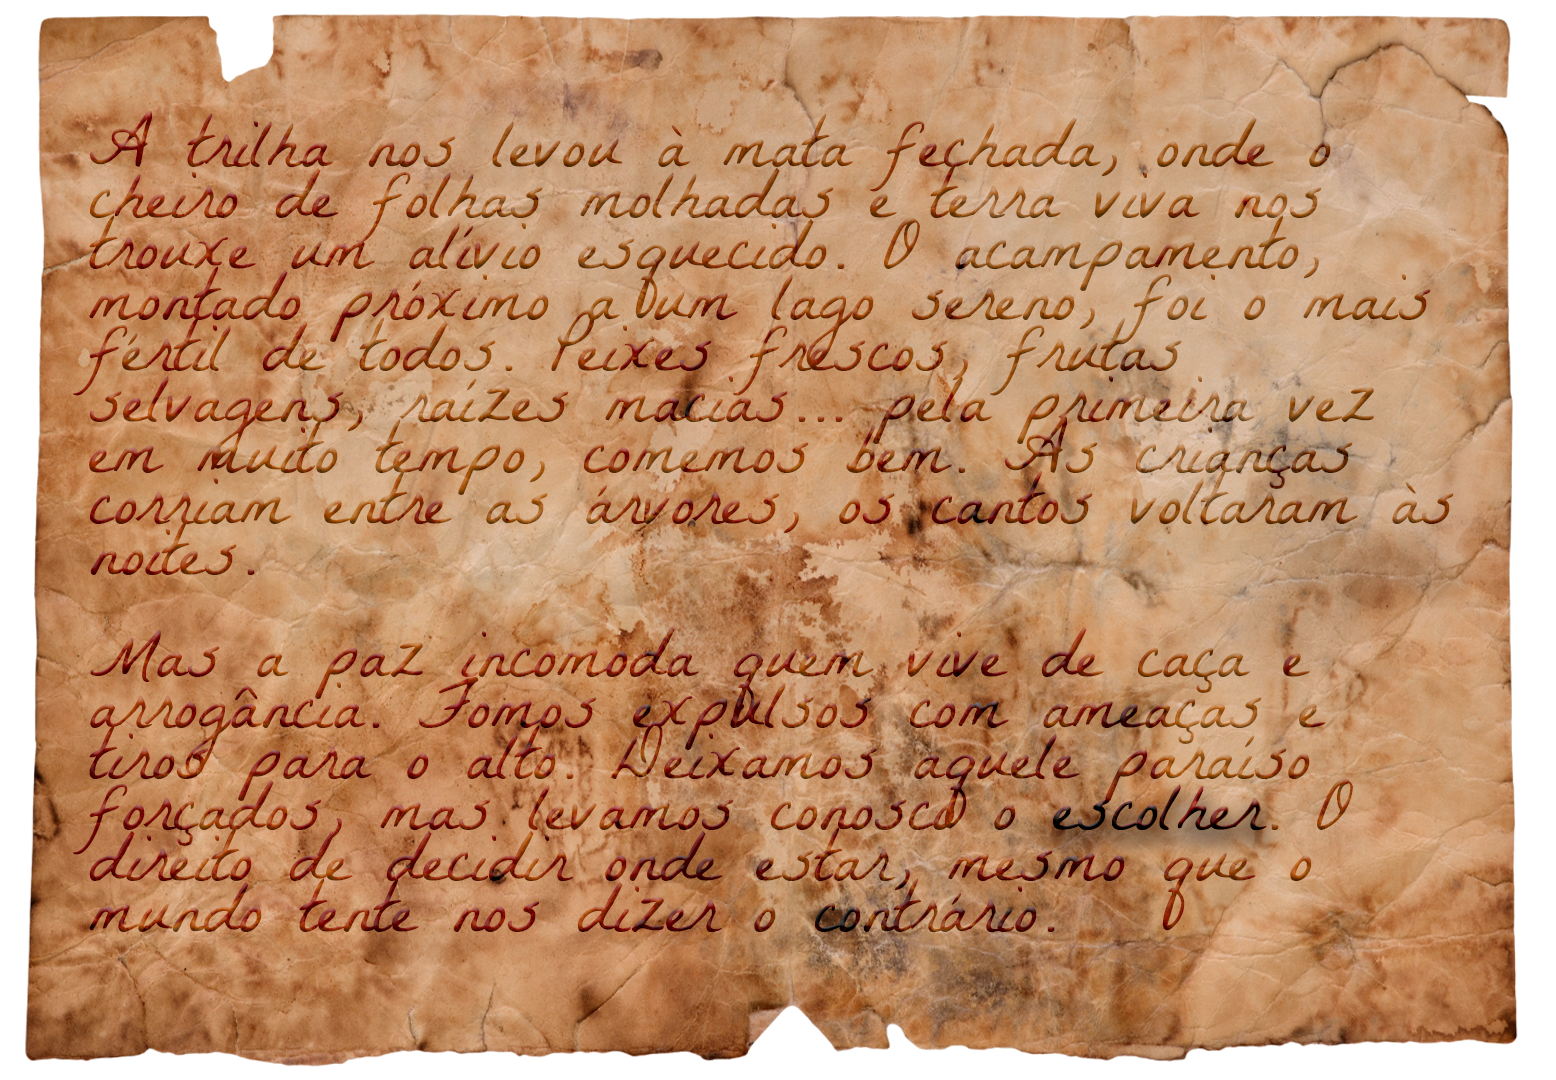 A trilha nos levou à mata fechada, onde o
cheiro de folhas molhadas e terra viva nos
trouxe um alívio esquecido. O acampamento,
montado próximo a um lago sereno, foi o mais
fértil de todos. Peixes frescos, frutas
selvagens, raízes macias... pela primeira vez
em muito tempo, comemos bem. As crianças
corriam entre as árvores, os cantos voltaram às
noites.
Mas a paz incomoda quem vive de caça e
arrogância. Fomos expulsos com ameaças e
tiros para o alto. Deixamos aquele paraíso
forçados, mas levamos conosco o escolher. O
direito de decidir onde estar, mesmo que o
mundo tente nos dizer o contrário.